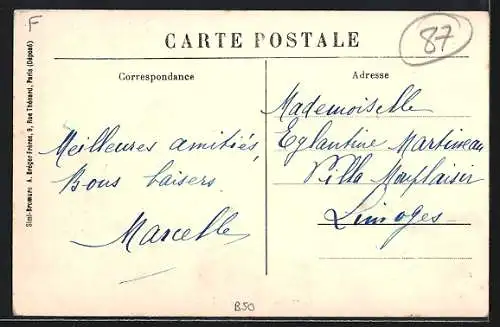 F
CARTE POSTALE
87
Correspondance
Adresse
Meilleures amitiés,
Bons baisers.
Marcelle
Mademoiselle
Eglantine Martineau
Villa Monplaisir
Limoges
Simi-Bromure A. Breger Frères, 9, Rue Thénard, Paris (Déposé)
B50